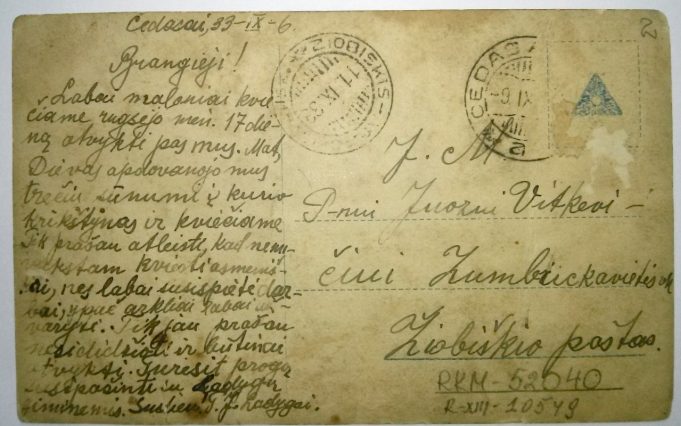 Cedasai, 33-IX-6.
Brangieji!
Labai maloniai kvie-
čiame rugsėjo mėn. 17 die-
ną atvykti pas mus. Mat,
Dievas apdovanojo mus
trečiu sūnumi į kurio
krikštynas ir kviečiame
Tik prašau atleisti, kad nenu-
kviesti asmeniš-
kai, nes labai susispietė dar-
bai, ypač arkliai labai nu-
varyti. Tik jau prašau
nesididžiuoti ir būtinai
atvykti. Turėsit progą
susipažinti su Ladygų
giminėmis. Sudiev. J. J. Ladygai.
ŽIOBIŠKIS
11.IX.33
CEDASAI
-9.IX
2
J. M.
P-nui Juozui Vitkevi-
čiui
Žiobiškio paštas.
RKM-52040
R-XIII-10549